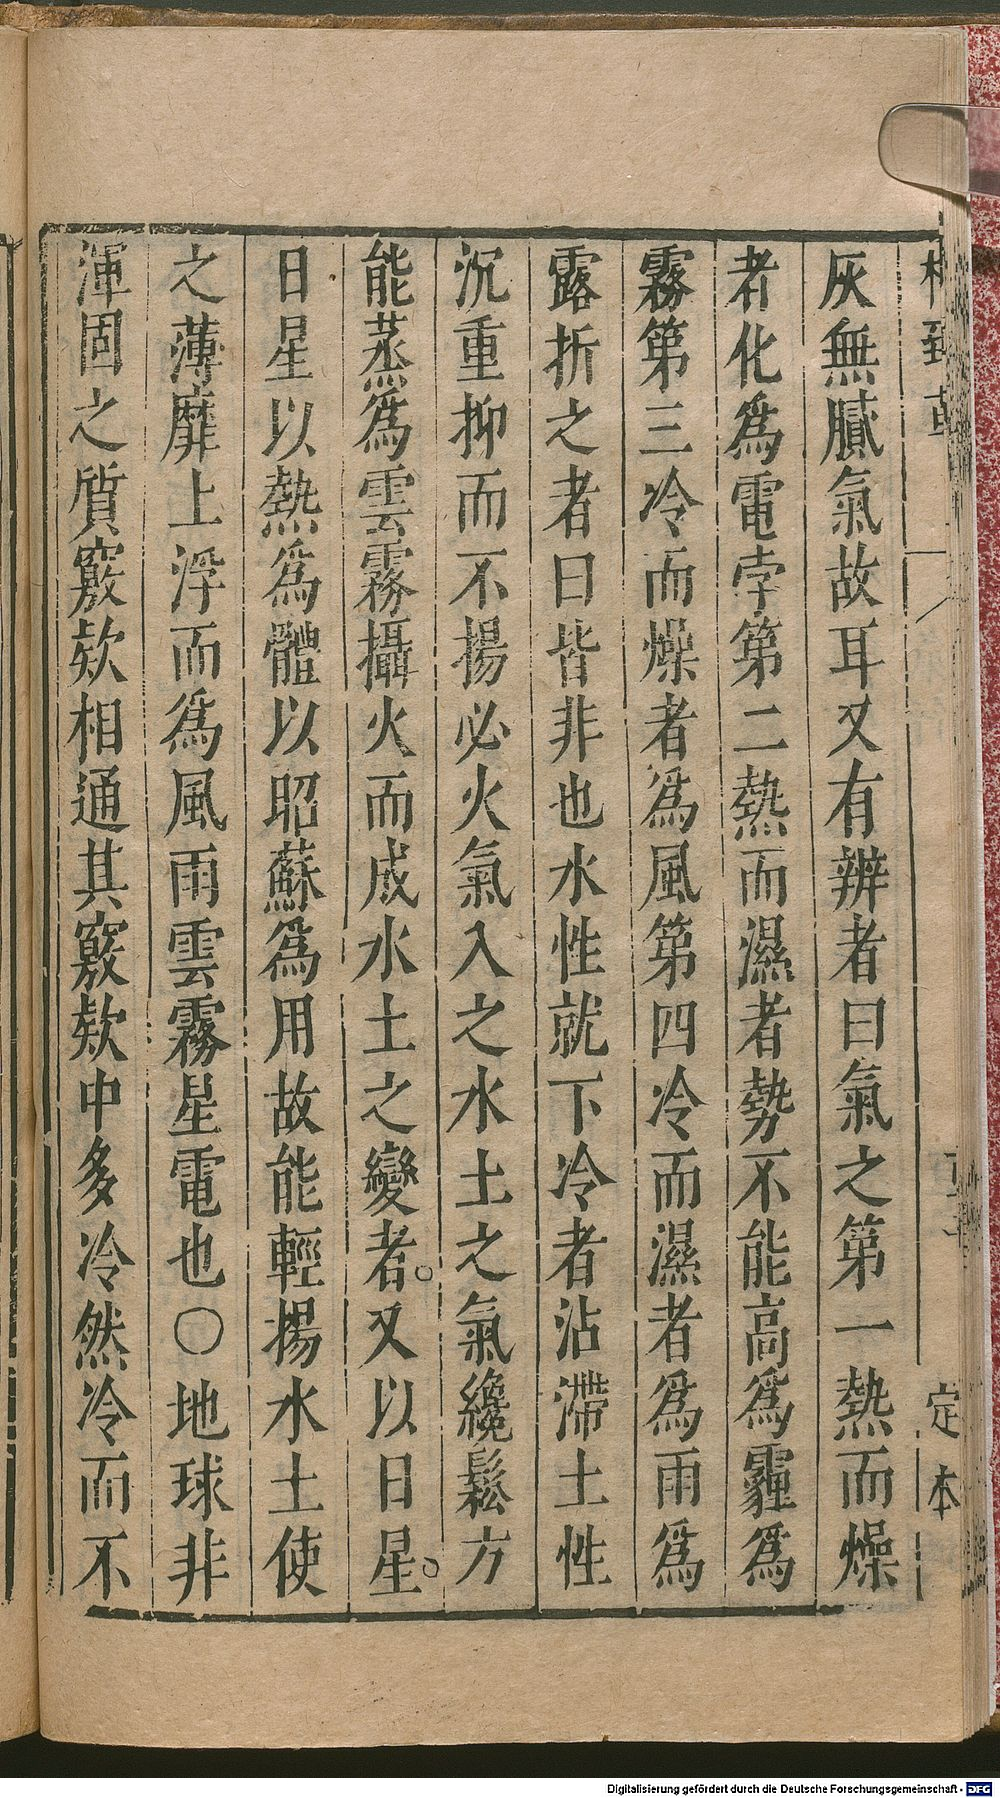 灰無膩氣故耳又有辨者曰氣之第一熱而燥
者化為電孛第二熱而濕者勢不能高為霾為
霧第三冷而燥者為風第四冷而濕者為雨為
露折之者曰皆非也水性就下冷者沾滯土性
沉重抑而不揚必火氣入之水土之氣纔鬆方
能蒸為雲霧攝火而成水土之變者。又以日星。
日星以熱為體以昭蘇為用故能輕揚水土使
之薄靡上浮而為風雨雲霧星電也○地球非
渾固之質竅欵相通其竅欵中多冷然冷而不
定本
Digitalisierung gefördert durch die Deutsche Forschungsgemeinschaft - DFG